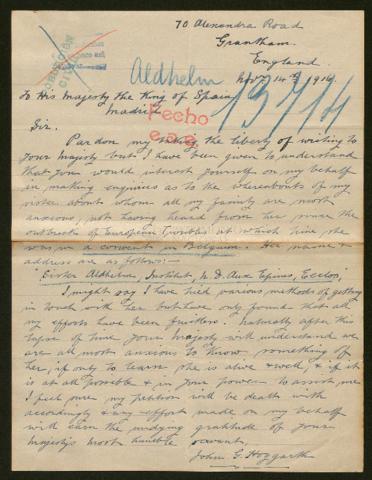 70 Alexandra Road
Grantham.
England.
Novr. 14th 1916
Aldhelm
13714
To His Majesty the King of Spain
Madrid.
Fecho
e.a.e.
Sir.
Pardon my taking the liberty of writing to
Your Majesty but I have been given to understand
that you would interest yourself on my behalf
in making enquiries as to the whereabouts of my
sister about whom all my family are most
anxious, not having heard from her since the
outbreak of European troubles at which time she
was in a convent in Belgium. Her name &
address are as follows:—
Sister Aldhelm, Institut N.D. Aux Epines, Eecloo,
I might say I have tried various methods of getting
in touch with her but have only found that all
my efforts have been fruitless. Naturally after this
lapse of time Your Majesty will understand we
are all most anxious to know something of
her, if only to learn she is alive & well, & if it
is at all possible & in your power to assist me
I feel sure my petition will be dealt with
accordingly & any effort made on my behalf
will earn the undying gratitude of your
Majesty's most humble servant,
John G. Hoggarth